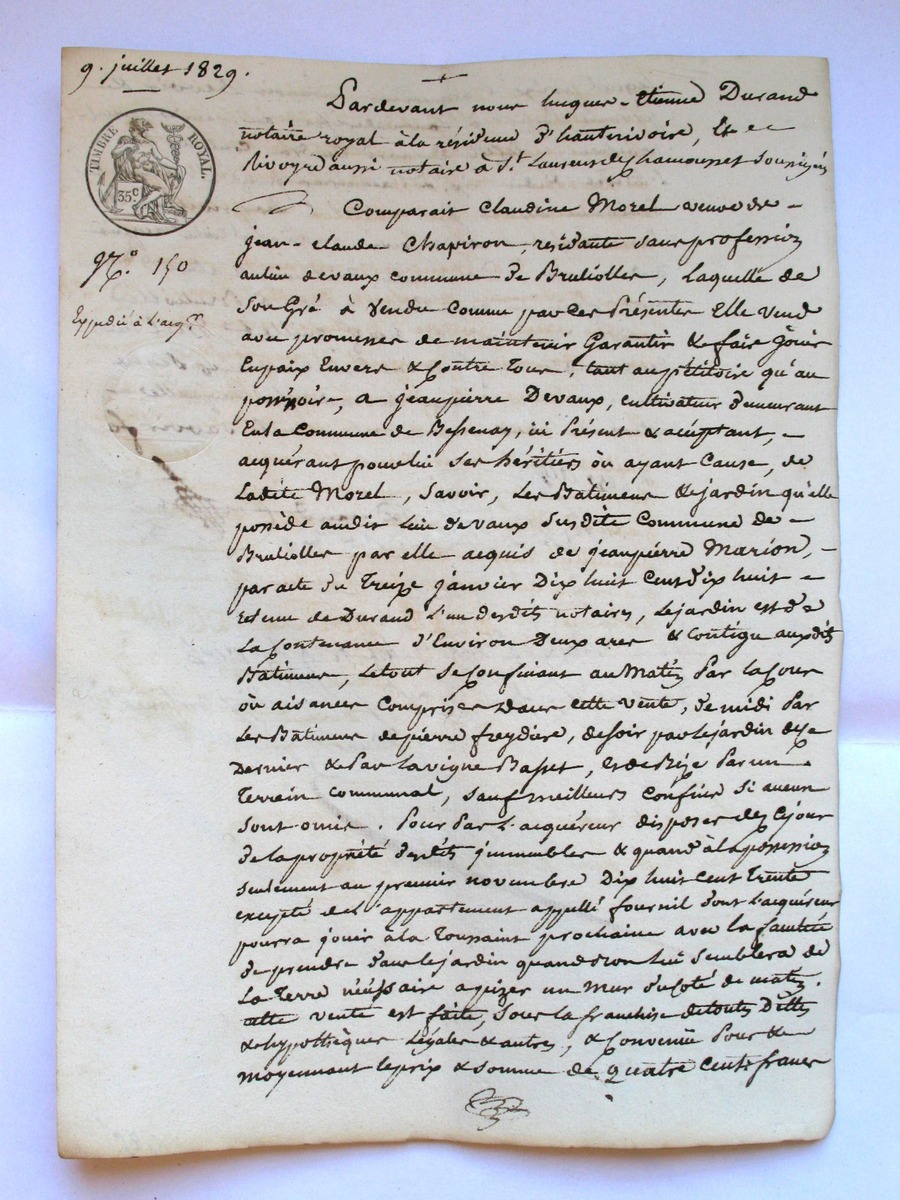 9. juillet 1829.
TIMBRE ROYAL.
35 c.
N.° 150
Expédié à l'acq.r
Pardevant nous hugues-etienne Durand
notaire royal à la résidence d'hauterivoire, Et
Rivoyre aussi notaire à St. Laurens de Chamousset soussignés
Comparait Claudine Morel veuve de -
jean-claude Chapiron, résidante sans profession
au lieu devaux commune de Brulliolles, laquelle de
Son Gré à vendu comme par ces Présentes Elle vend
avec promesses de maintenir Garantir & faire jouir
En paix Envers & contre tous, tant au pétitoire qu'au
possessoire, a jeanpierre Devaux, cultivateur demeurant
En la Commune de Bessenay, ici Présent & acceptant, -
acquérant pour lui ses héritiers ou ayant Cause, de
Ladite Morel, Savoir, Les Batimens & jardin qu'elle
possède audit Lieu devaux Susdite Commune de -
Brulliolles par elle acquis de jeanpierre Marion, -
par acte du Treize janvier Dix huit Cent dix huit -
Retenu de Durand L'un desdits notaires, Le jardin est de
La Contenance d'Environ Deux ares & contigu auxdits
Batimens, Letout se Confinant au Matin Par la Cour
ou aisances Comprises Dans cette vente, de midi Par
Les Batimens depierre freydière, desoir par Lejardin de ce
Dernier & Par La vigne Basset, & de Bize Par un -
Terrein communal, sauf meilleurs confins si aucun
sont omis. Pour Par L'acquéreur disposer dès ce jour
de la propriété desdits immeubles & quand à la possession
seulement au premier novembre Dix huit Cent Trente
excepté de L'appartement appellé fournil dont L'acquéreur
pourra jouir à la Toussaint prochaine avec la faculté
de prendre dans le jardin quand bon Lui semblera de
La Terre nécéssaire a pizer un Mur du coté de matin.
cette vente est faite, sous la franchise detoutes Dettes
& hypothèques Légales & autres, & Convenue Pour &
moyennant le prix & somme de quatre cents francs